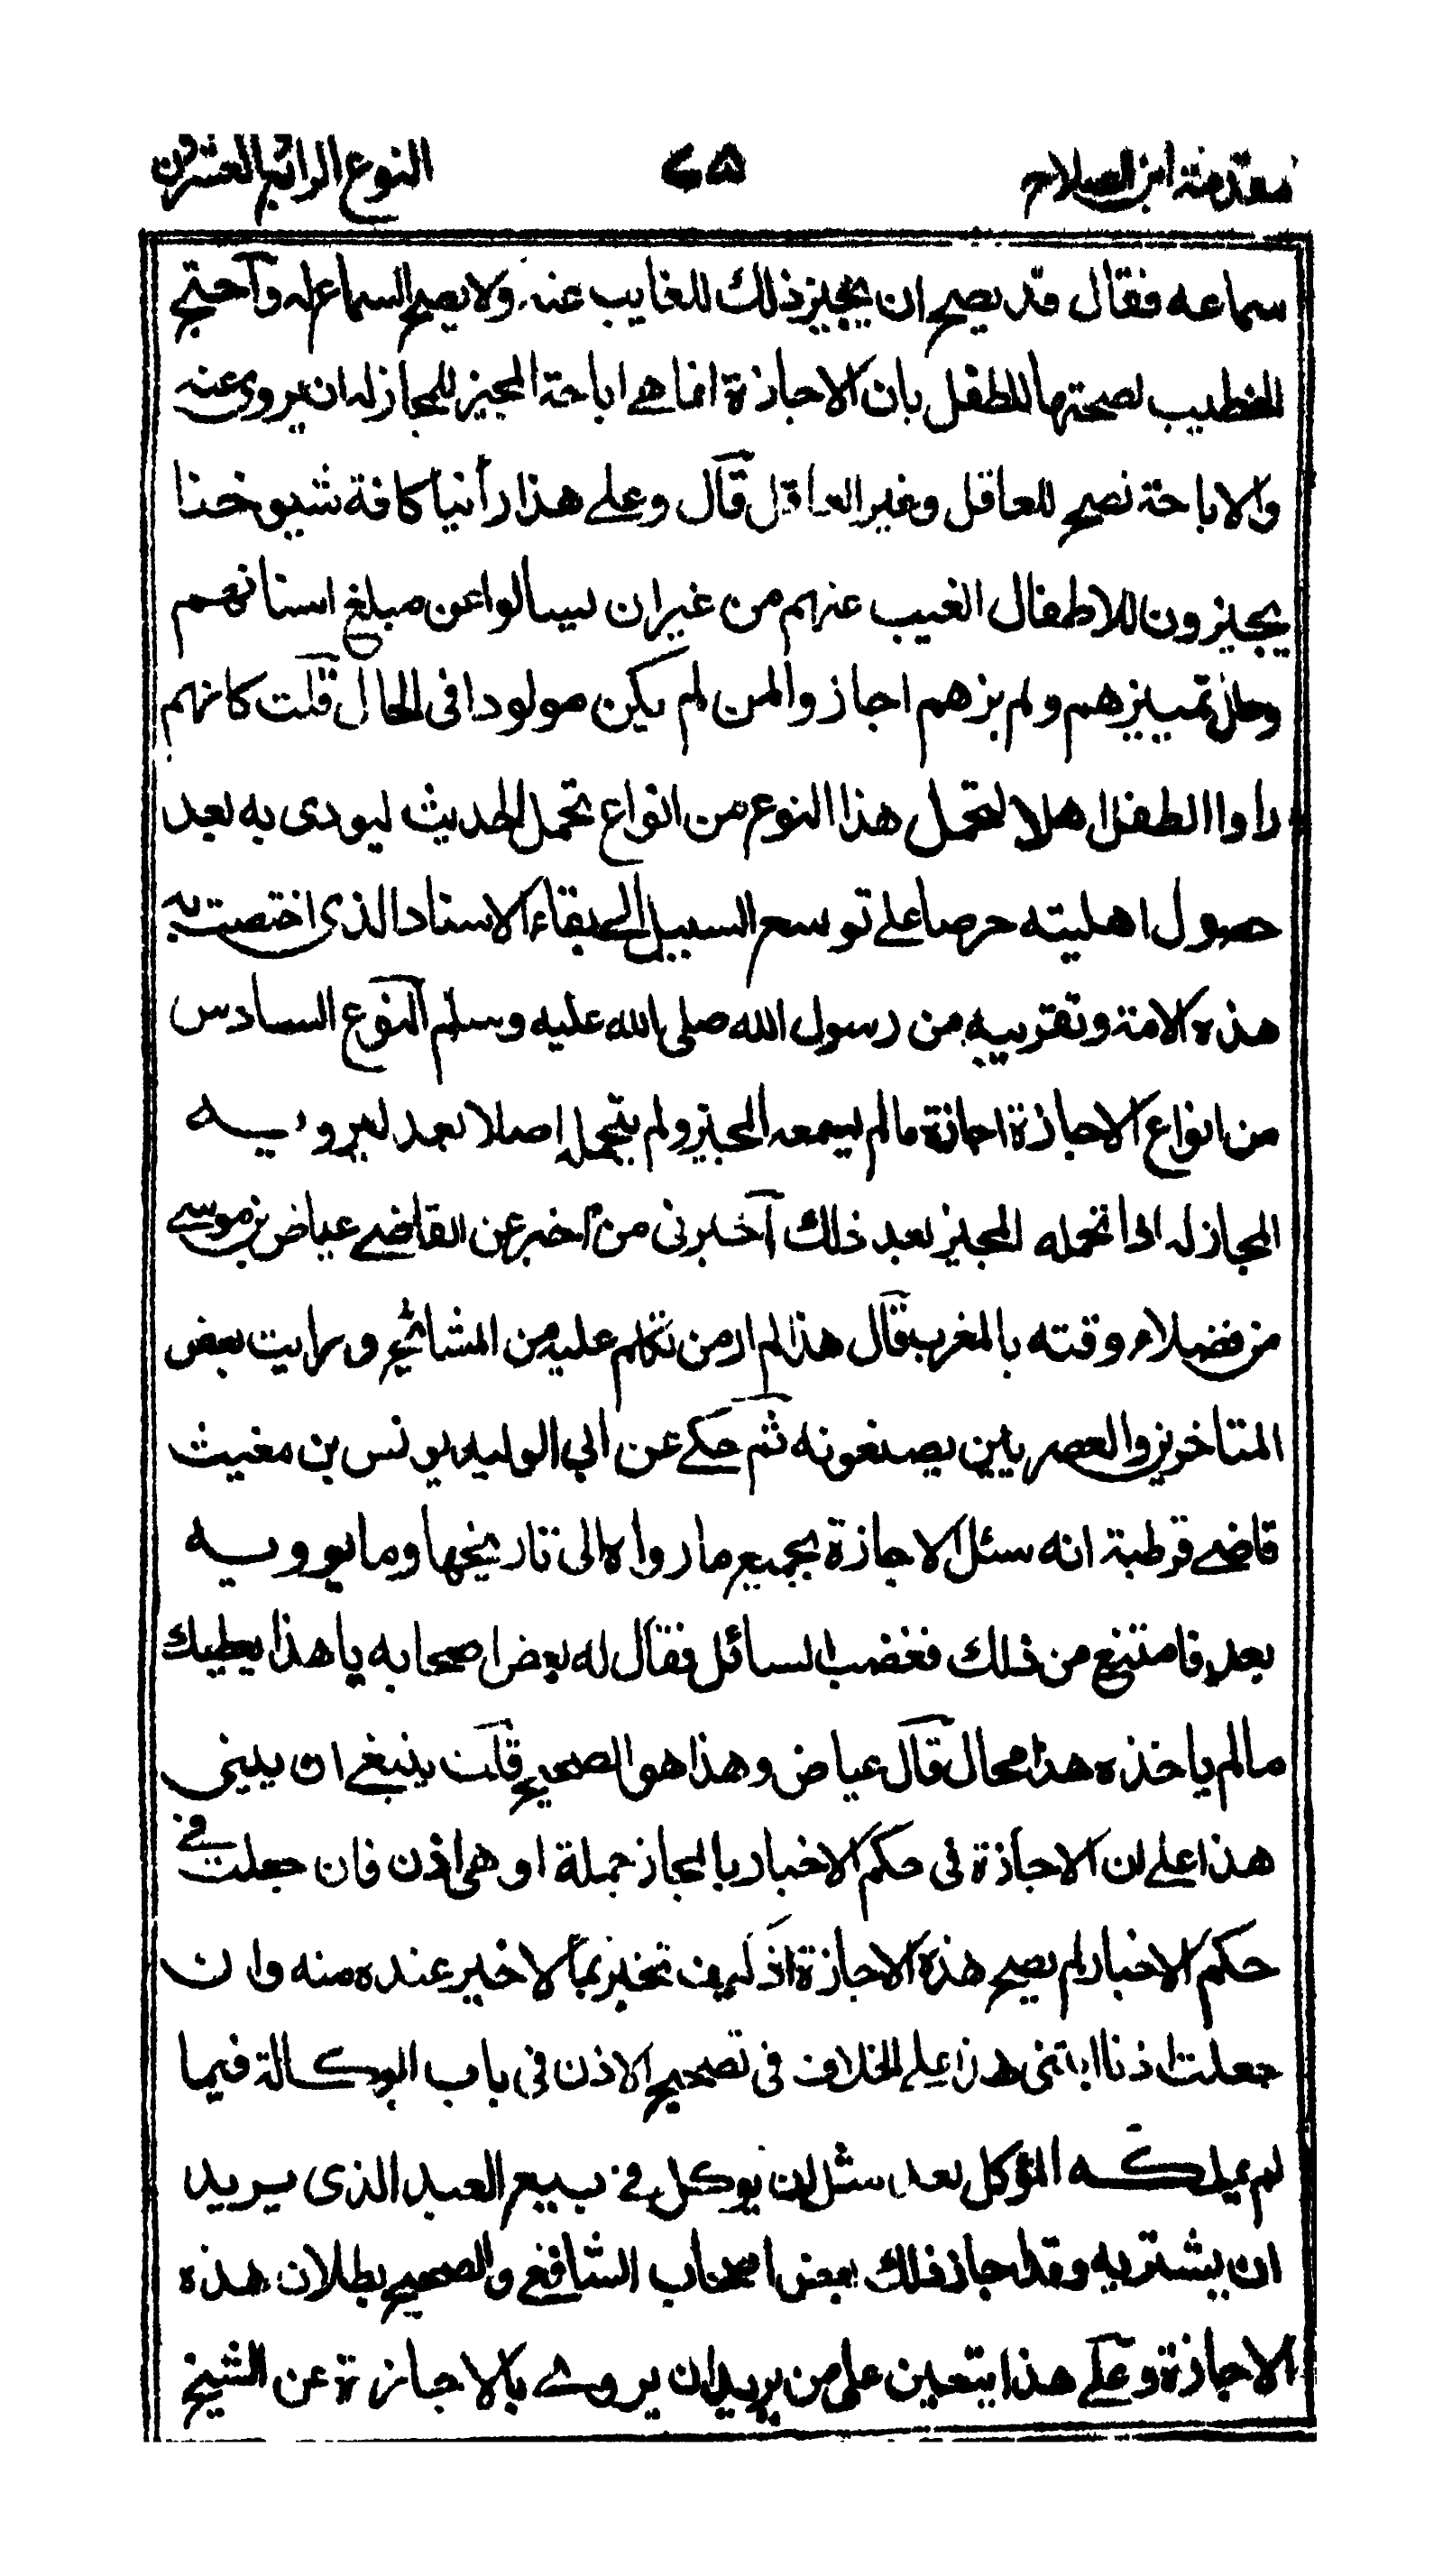 مقدمة ابن الصلاح ٧٥ النوع الرابع العشرون
سماعه فقال قد يصح ان يجيز ذلك للغايب عنه ولا يصح السماع له واحتج
الخطيب لصحتها للطفل بان الاجازة انما هے اباحة المجيز للمجاز له ان يروی عنه
والاباحة تصح للعاقل وغير العاقل قال وعلے هذا رأينا كافة شيوخنا
يجيزون للاطفال الغيب عنهم من غير ان يسالوا عن مبلغ اسنانهم
وحال تميزهم ولم نرهم اجازوا لمن لم يكن مولودا فی الحال قلت كانهم
راوا الطفل اهلا لتحمل هذا النوع من انواع تحمل الحديث ليودی به بعد
حصول اهليته حرصا علے توسع السبيل الے بقاء الاسناد الذی اختصت به
هذه الامة وتقريبه من رسول الله صلی الله عليه وسلم النوع السادس
من انواع الاجازة اجازة مالم يسمعه المجيز ولم يتحمله اصلا بعد ليرويه
المجاز له اذا تحمله المجيز بعد ذلك اخبرنی من اخبر عن القاضے عياض بن موسے
من فضلاء وقته بالمغرب قال هذا لم ار من تكلم عليه من المشائخ ورايت بعض
المتاخرين والعصريين يصنعونه ثم حكے عن ابي الوليد يونس بن مغيث
قاضے قرطبة انه سئل الاجازة بجميع ما رواه الی تاريخها وما يرويه
بعد فامتنع من ذلك فغضب السائل فقال له بعض اصحابه يا هذا يعطيك
مالم ياخذه هذا محال قال عياض وهذا هو الصحيح قلت ينبغے ان يبنی
هذا علے ان الاجازة فی حكم الاخبار بالمجاز جملة او هی اذن فان جعلت فے
حكم الاخبار لم يصح هذه الاجازة اذ كيف تخبر بما لا خبر عنده منه وان
جعلت اذنا ابتنی هذا علے الخلاف فی تصحيح الاذن فی باب الوكالة فيما
لم يملكه المؤكل بعد مثل ان يوكل فے بيع العبد الذی يريد
ان يشتريه وقد اجاز ذلك بعض اصحاب الشافعے والصحيح بطلان هذه
الاجازة وعلے هذا يتعين علی من يريد ان يروے بالاجازة عن الشيخ